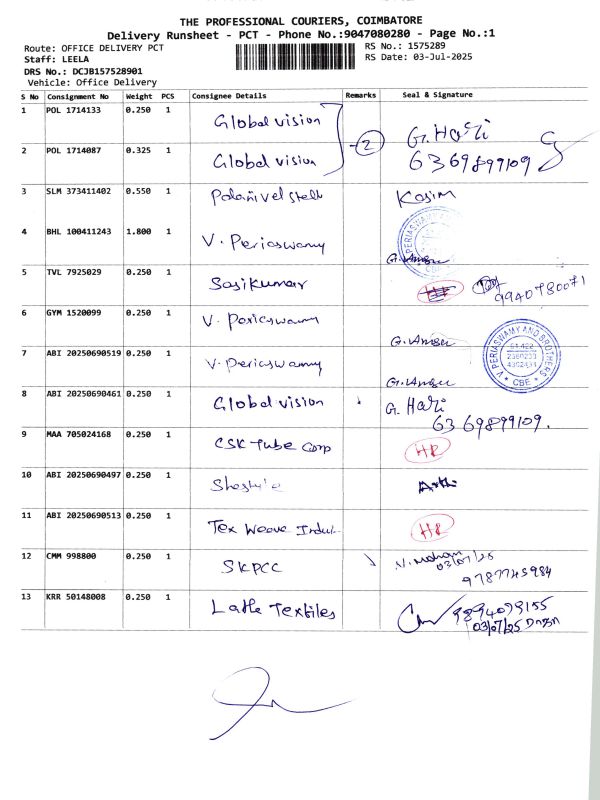 THE PROFESSIONAL COURIERS, COIMBATORE
Delivery Runsheet - PCT - Phone No.:9047080280 - Page No.:1
Route: OFFICE DELIVERY PCT
RS No.: 1575289
Staff: LEELA
RS Date: 03-Jul-2025
DRS No.: DCJB157528901
Vehicle: Office Delivery
S No Consignment No Weight PCS Consignee Details Remarks Seal & Signature
1 POL 1714133 0.250 1 Global vision G. Hari
2 POL 1714087 0.325 1 Global vision 2 6369899109
3 SLM 373411402 0.550 1 Palanivel steel Kasim
4 BHL 100411243 1.800 1 V. Periaswamy G. Ambu
5 TVL 7925029 0.250 1 Sasikumar 9940780071
6 GYM 1520099 0.250 1 V. Periaswamy G. Ambu
V. PERIASWAMY AND BROTHERS
CBE
7 ABI 20250690519 0.250 1 V. Periaswamy G. Ambu
8 ABI 20250690461 0.250 1 Global vision G. Hari
6369899109.
9 MAA 705024168 0.250 1 CSK Tube Corp HR
10 ABI 20250690497 0.250 1
11 ABI 20250690513 0.250 1 Tex Weave HR
12 CMM 998800 0.250 1 SKPCC V. Mohan
03/07/25
9787745984
13 KRR 50148008 0.250 1 Textiles 9894099155
03/07/25